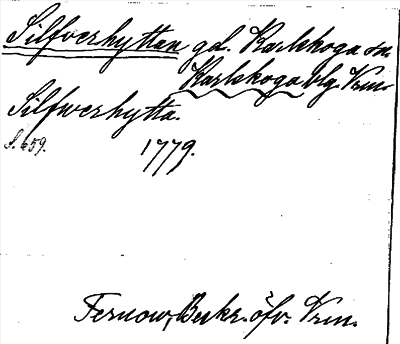 Silfverhyttan gd. Karlskoga sn.
Karlskoga bg. Vrml.
Silfwerhytta.
S. 659. 1779.
Fernow, Beskr. öfv. Vrm.